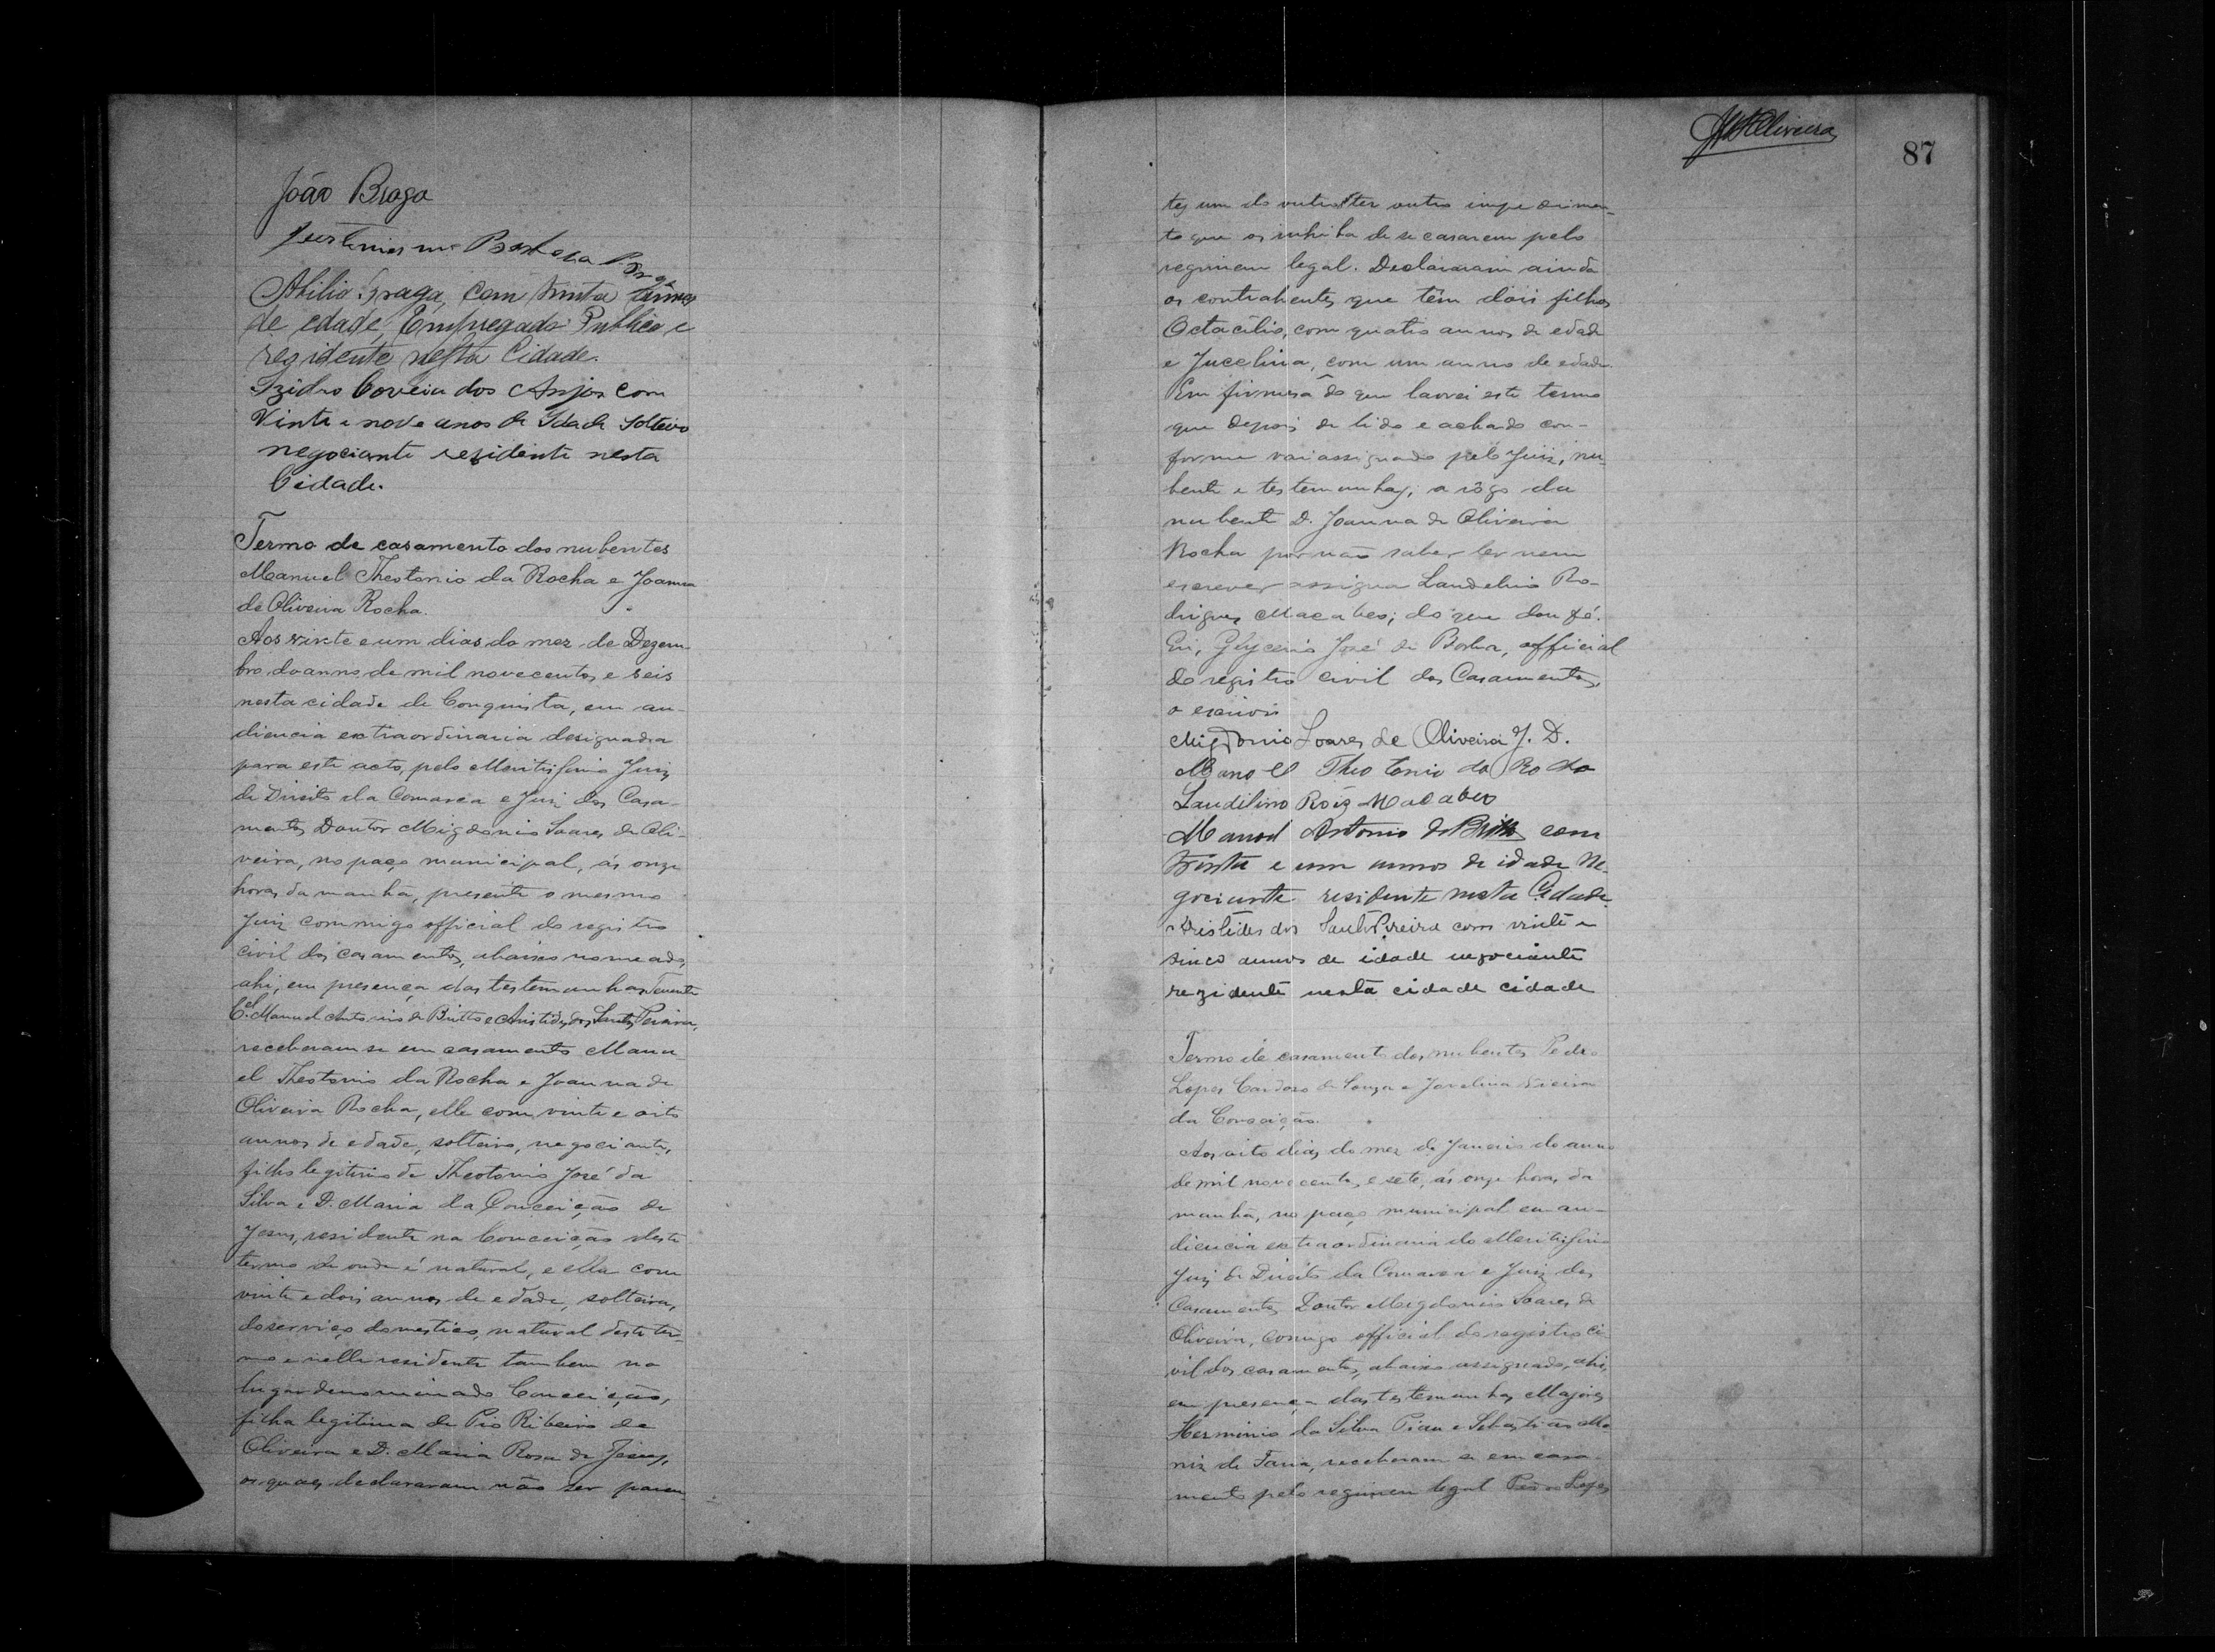 João Braga
Abilio Braga, com trinta annos
de edade, Empregado Publico, e
residente nesta Cidade.
Izidro Correia dos Anjos com
Vinte e nove anos de Idade Solteiro
negociante rezidente nesta
Cidade.
Termo de casamento dos nubentes
Manuel Theotonio da Rocha e Joanna
de Oliveira Rocha.
Aos vinte e um dias do mez de Dezem
bro do anno de mil novecentos e seis
nesta cidade de Conquista, em au-
diencia extraordinaria designada
para este acto, pelo Meritissimo Juiz
de Direito da Comarca e Juiz dos Casa-
mentos Doutor Migdonio Soares de Oli-
veira, no paço municipal, ás onze
horas da manhã, presente o mesmo
Juiz commigo official do registro
civil dos casamentos, abaixo nomeado,
ahi, em presença das testemunhas Tenente
Cel. Manuel Antonio de Britto e Aristides dos Santos Pereira,
receberam se em casamento Manu
el Theotonio da Rocha e Joanna de
Oliveira Rocha, elle com vinte e oito
annos de edade, solteiro, negociante,
filho legitimo de Theotonio José da
Silva e D. Maria da Conceição de
Jesus, residente na Conceição deste
termo de onde é natural, e ella com
vinte e dois annos de edade, solteira,
do serviço domestico, natural deste ter-
mo e nelle residente tambem no
lugar denominado Conceição,
filha legitima de Pio Ribeiro de
Oliveira e D. Maria Rosa de Jesus,
os quaes declararam não ser paren
87
tes um do outro ter outro impedimen-
to que os inhiba de se casarem pelo
regimen legal. Declararam ainda
os contrahentes que têm dois filhos
Octacilio, com quatro annos de edade
e Jucelina, com um anno de edade.
Em firmesa do que lavrei este termo
que depois de lido e achado con-
forme vai assignado pelo Juiz, nu-
bente e testemunhas; a rôgo da
nubente D. Joanna de Oliveira
Rocha por não saber ler nem
escrever assigna Landelino Ro-
drigues Macabeo; do que dou fé.
Eu, Glycerio José de Borba, official
do registro civil dos Casamentos,
o escrivi
Migdonio Soares de Oliveira J. D.
Manoel Theotonio da Rocha
Laudilino Roiz Macabeo
Manoel Antonio de Britto com
trinta e um annos de idade Ne-
gociante residente nesta Cidade
Aristides dos Santos Pereira com vinte e
sinco annos de idade negociante
rezidente nesta cidade cidade
Termo de casamento dos nubentes Pedro
Lopes Cardoso de Souza e Jovelina Vieira
da Conceição.
Aos oito dias do mez de Janeiro do anno
de mil novecentos e sete, ás onze horas da
manhã, no paço municipal em au-
diencia extraordinaria do Meritissimo
Juiz de Direito da Comarca e Juiz dos
Casamentos Doutor Migdonio Soares de
Oliveira, comigo official do registro ci
vil dos casamentos, abaixo assignado, ahi,
em presença das testemunhas Majores
Herminio da Silva Piau e Sebastião Mo
niz de Faria, receberam se em casa-
mento pelo regimen legal Pedro Lopes